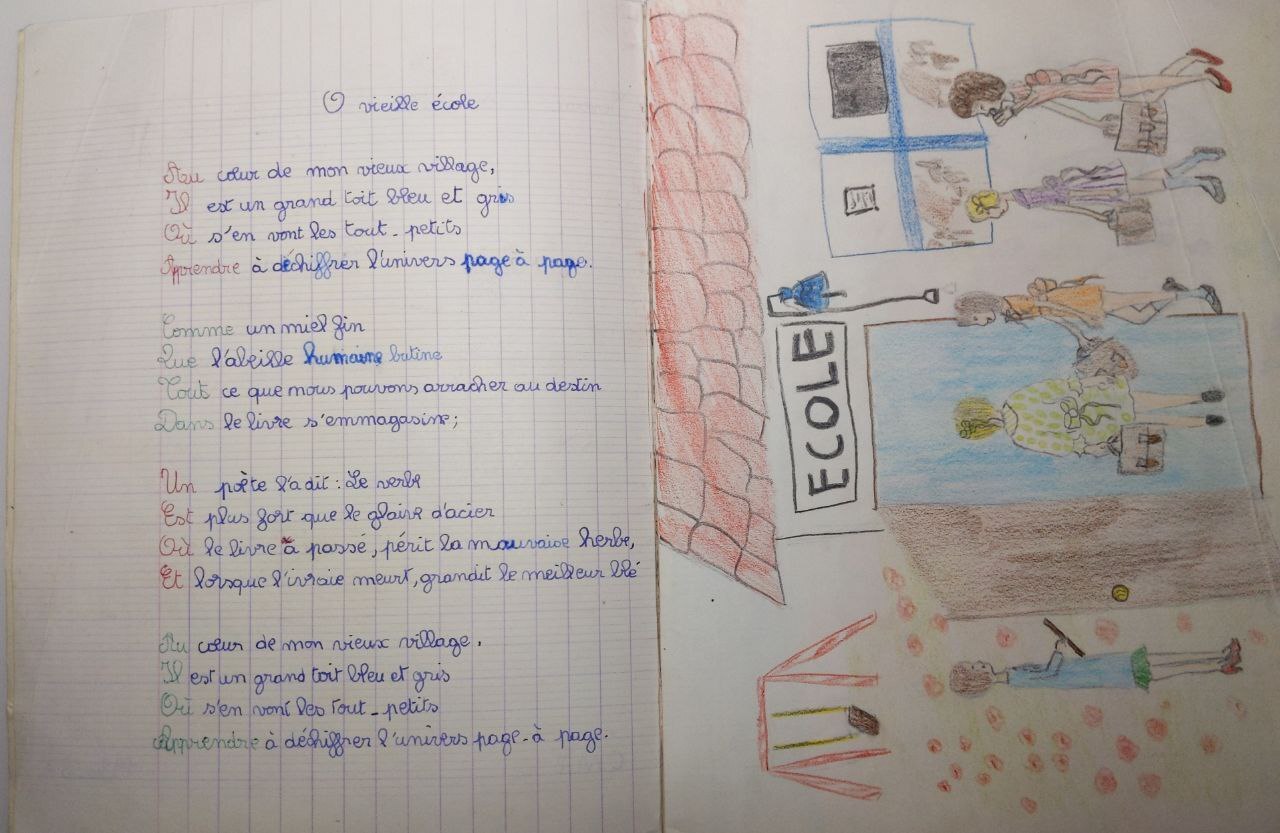 O vieille école
Au cœur de mon vieux village,
Il est un grand toit bleu et gris
Où s'en vont les tout-petits
Apprendre à déchiffrer l'univers page à page.
Comme un miel fin
Que l'abeille humaine butine
Tout ce que nous pouvons arracher au destin
Dans le livre s'emmagasine;
Un poète l'a dit : Le verbe
Est plus fort que le glaive d'acier
Où le livre a passé, périt la mauvaise herbe,
Et lorsque l'ivraie meurt, grandit le meilleur blé
Au cœur de mon vieux village.
Il est un grand toit bleu et gris
Où s'en vont les tout-petits
Apprendre à déchiffrer l'univers page-à page.
ECOLE